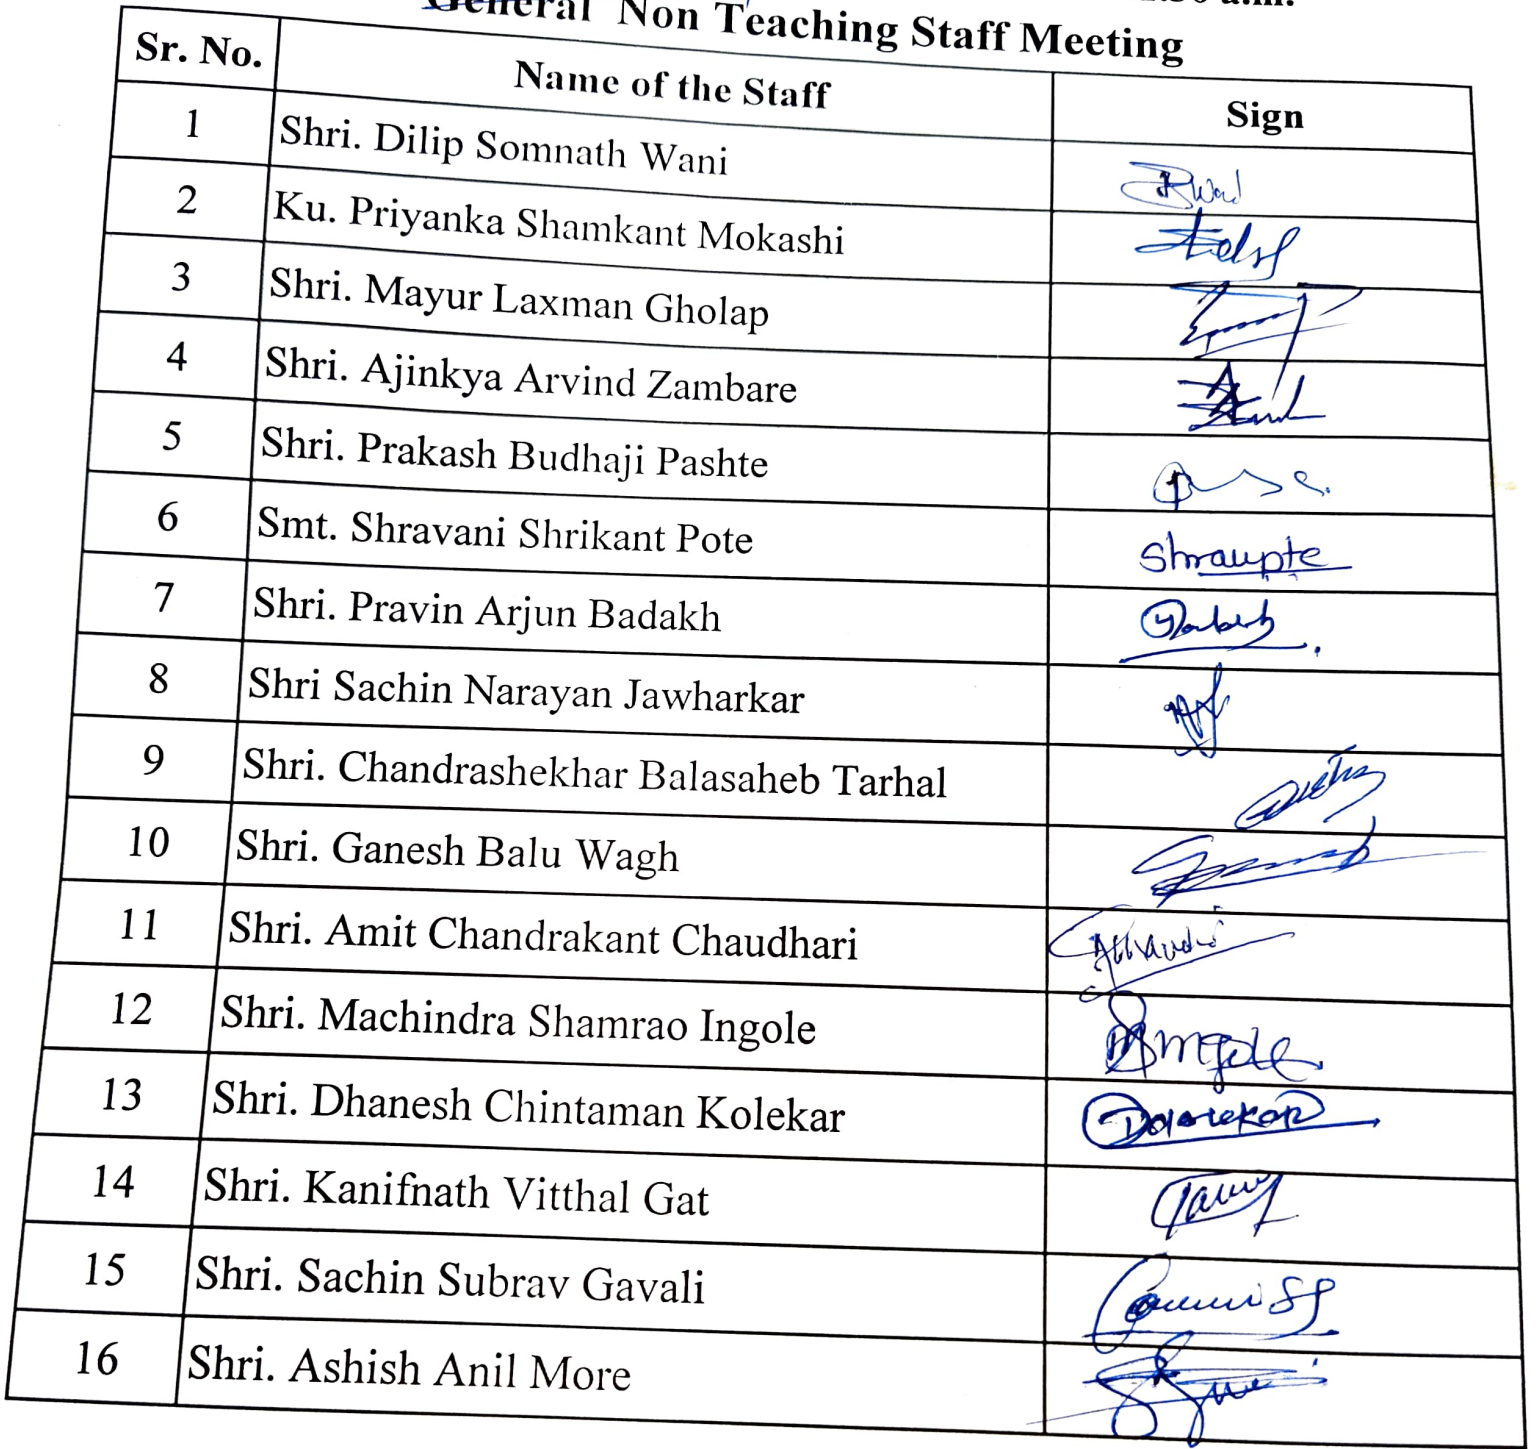 General Non Teaching Staff Meeting
Sr. No. Name of the Staff Sign
1 Shri. Dilip Somnath Wani
2 Ku. Priyanka Shamkant Mokashi
3 Shri. Mayur Laxman Gholap
4 Shri. Ajinkya Arvind Zambare
5 Shri. Prakash Budhaji Pashte
6 Smt. Shravani Shrikant Pote
7 Shri. Pravin Arjun Badakh
8 Shri Sachin Narayan Jawharkar
9 Shri. Chandrashekhar Balasaheb Tarhal
10 Shri. Ganesh Balu Wagh
11 Shri. Amit Chandrakant Chaudhari
12 Shri. Machindra Shamrao Ingole
13 Shri. Dhanesh Chintaman Kolekar
14 Shri. Kanifnath Vitthal Gat
15 Shri. Sachin Subrav Gavali
16 Shri. Ashish Anil More